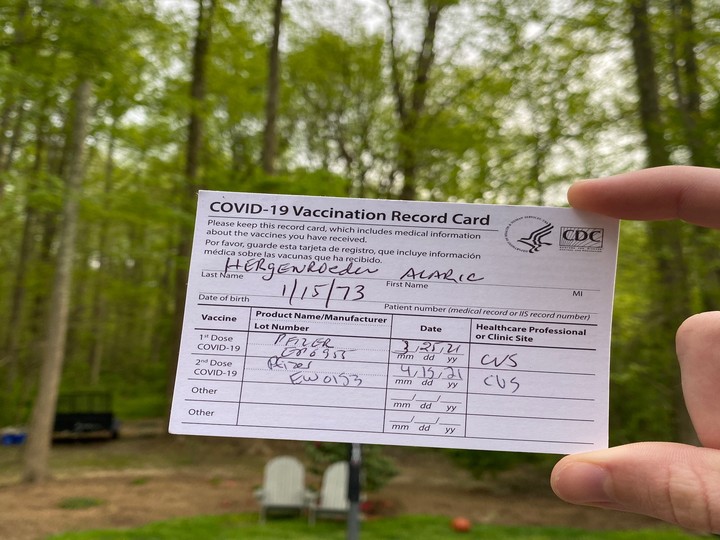 COVID-19 Vaccination Record Card
Please keep this record card, which includes medical information
about the vaccines you have received.
Por favor, guarde esta tarjeta de registro, que incluye información
médica sobre las vacunas que ha recibido.
HERGENROEDER ALARIC
Last Name First Name MI
1/15/73
Date of birth Patient number (medical record or IIS record number)
Vaccine Product Name/Manufacturer Date Healthcare Professional
Lot Number or Clinic Site
1st Dose PFIZER 3/25/21 CVS
COVID-19 mm dd yy
2nd Dose Pfizer 4/15/21 CVS
COVID-19 EW0153 mm dd yy
Other
mm dd yy
Other
mm dd yy
CDC